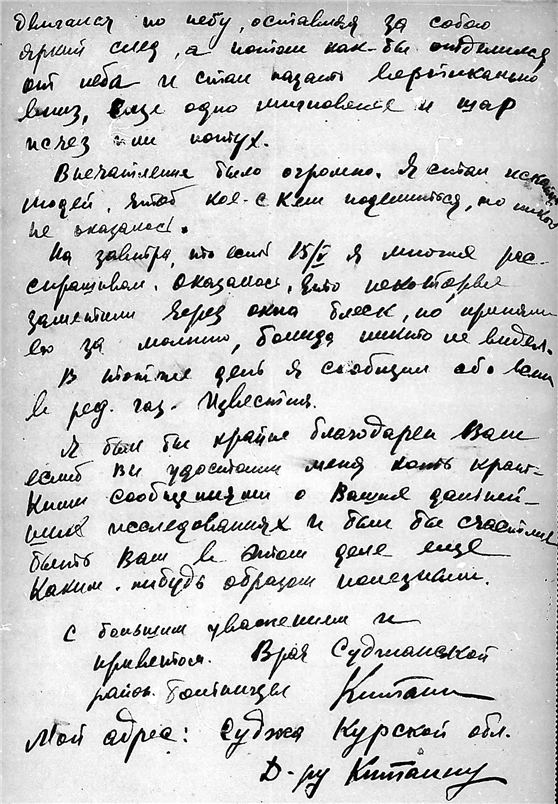 двигался по небу, оставляя за собою
яркий след, а потом как-бы отделился
от неба и стал падать вертикально
вниз, еще одно мгновение и шар
исчез или потух.
Впечатление было огромно. Я стал искать
людей, чтоб кое-с кем поделиться, но никого
не оказалось.
На завтра, то есть 15/V я многих рас-
спрашивал. Оказалось, что некоторые
заметили через окна блеск, но приняли
его за молнию, болида никто не видел.
В тот-же день я сообщил обо всем
в ред. газ. Известия.
Я был бы крайне благодарен Вам
еслиб Вы удостоили меня хоть крат-
кими сообщениями о Ваших дальней-
ших исследованиях и был бы счастлив
быть Вам в этом деле еще
каким-нибудь образом полезным.
С большим уважением и
приветом. Врач Суджанской
район. больницы
Мой адрес: Суджа Курской обл.
Д-ру